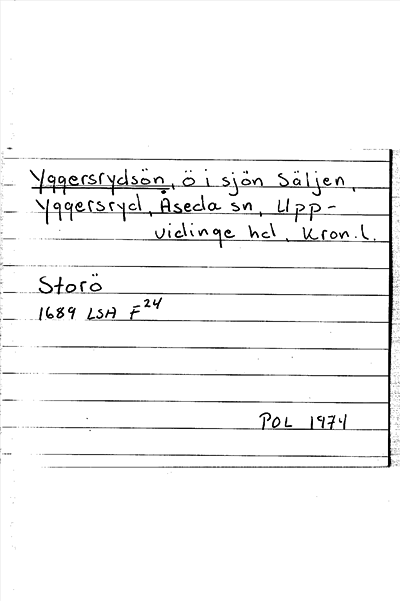 Yggersrydsön, ö i sjön Säljen,
Yggersryd, Åseda sn, Upp-
vidinge hd, Kron.l.
Storö
1689 LSA F24
POL 1974